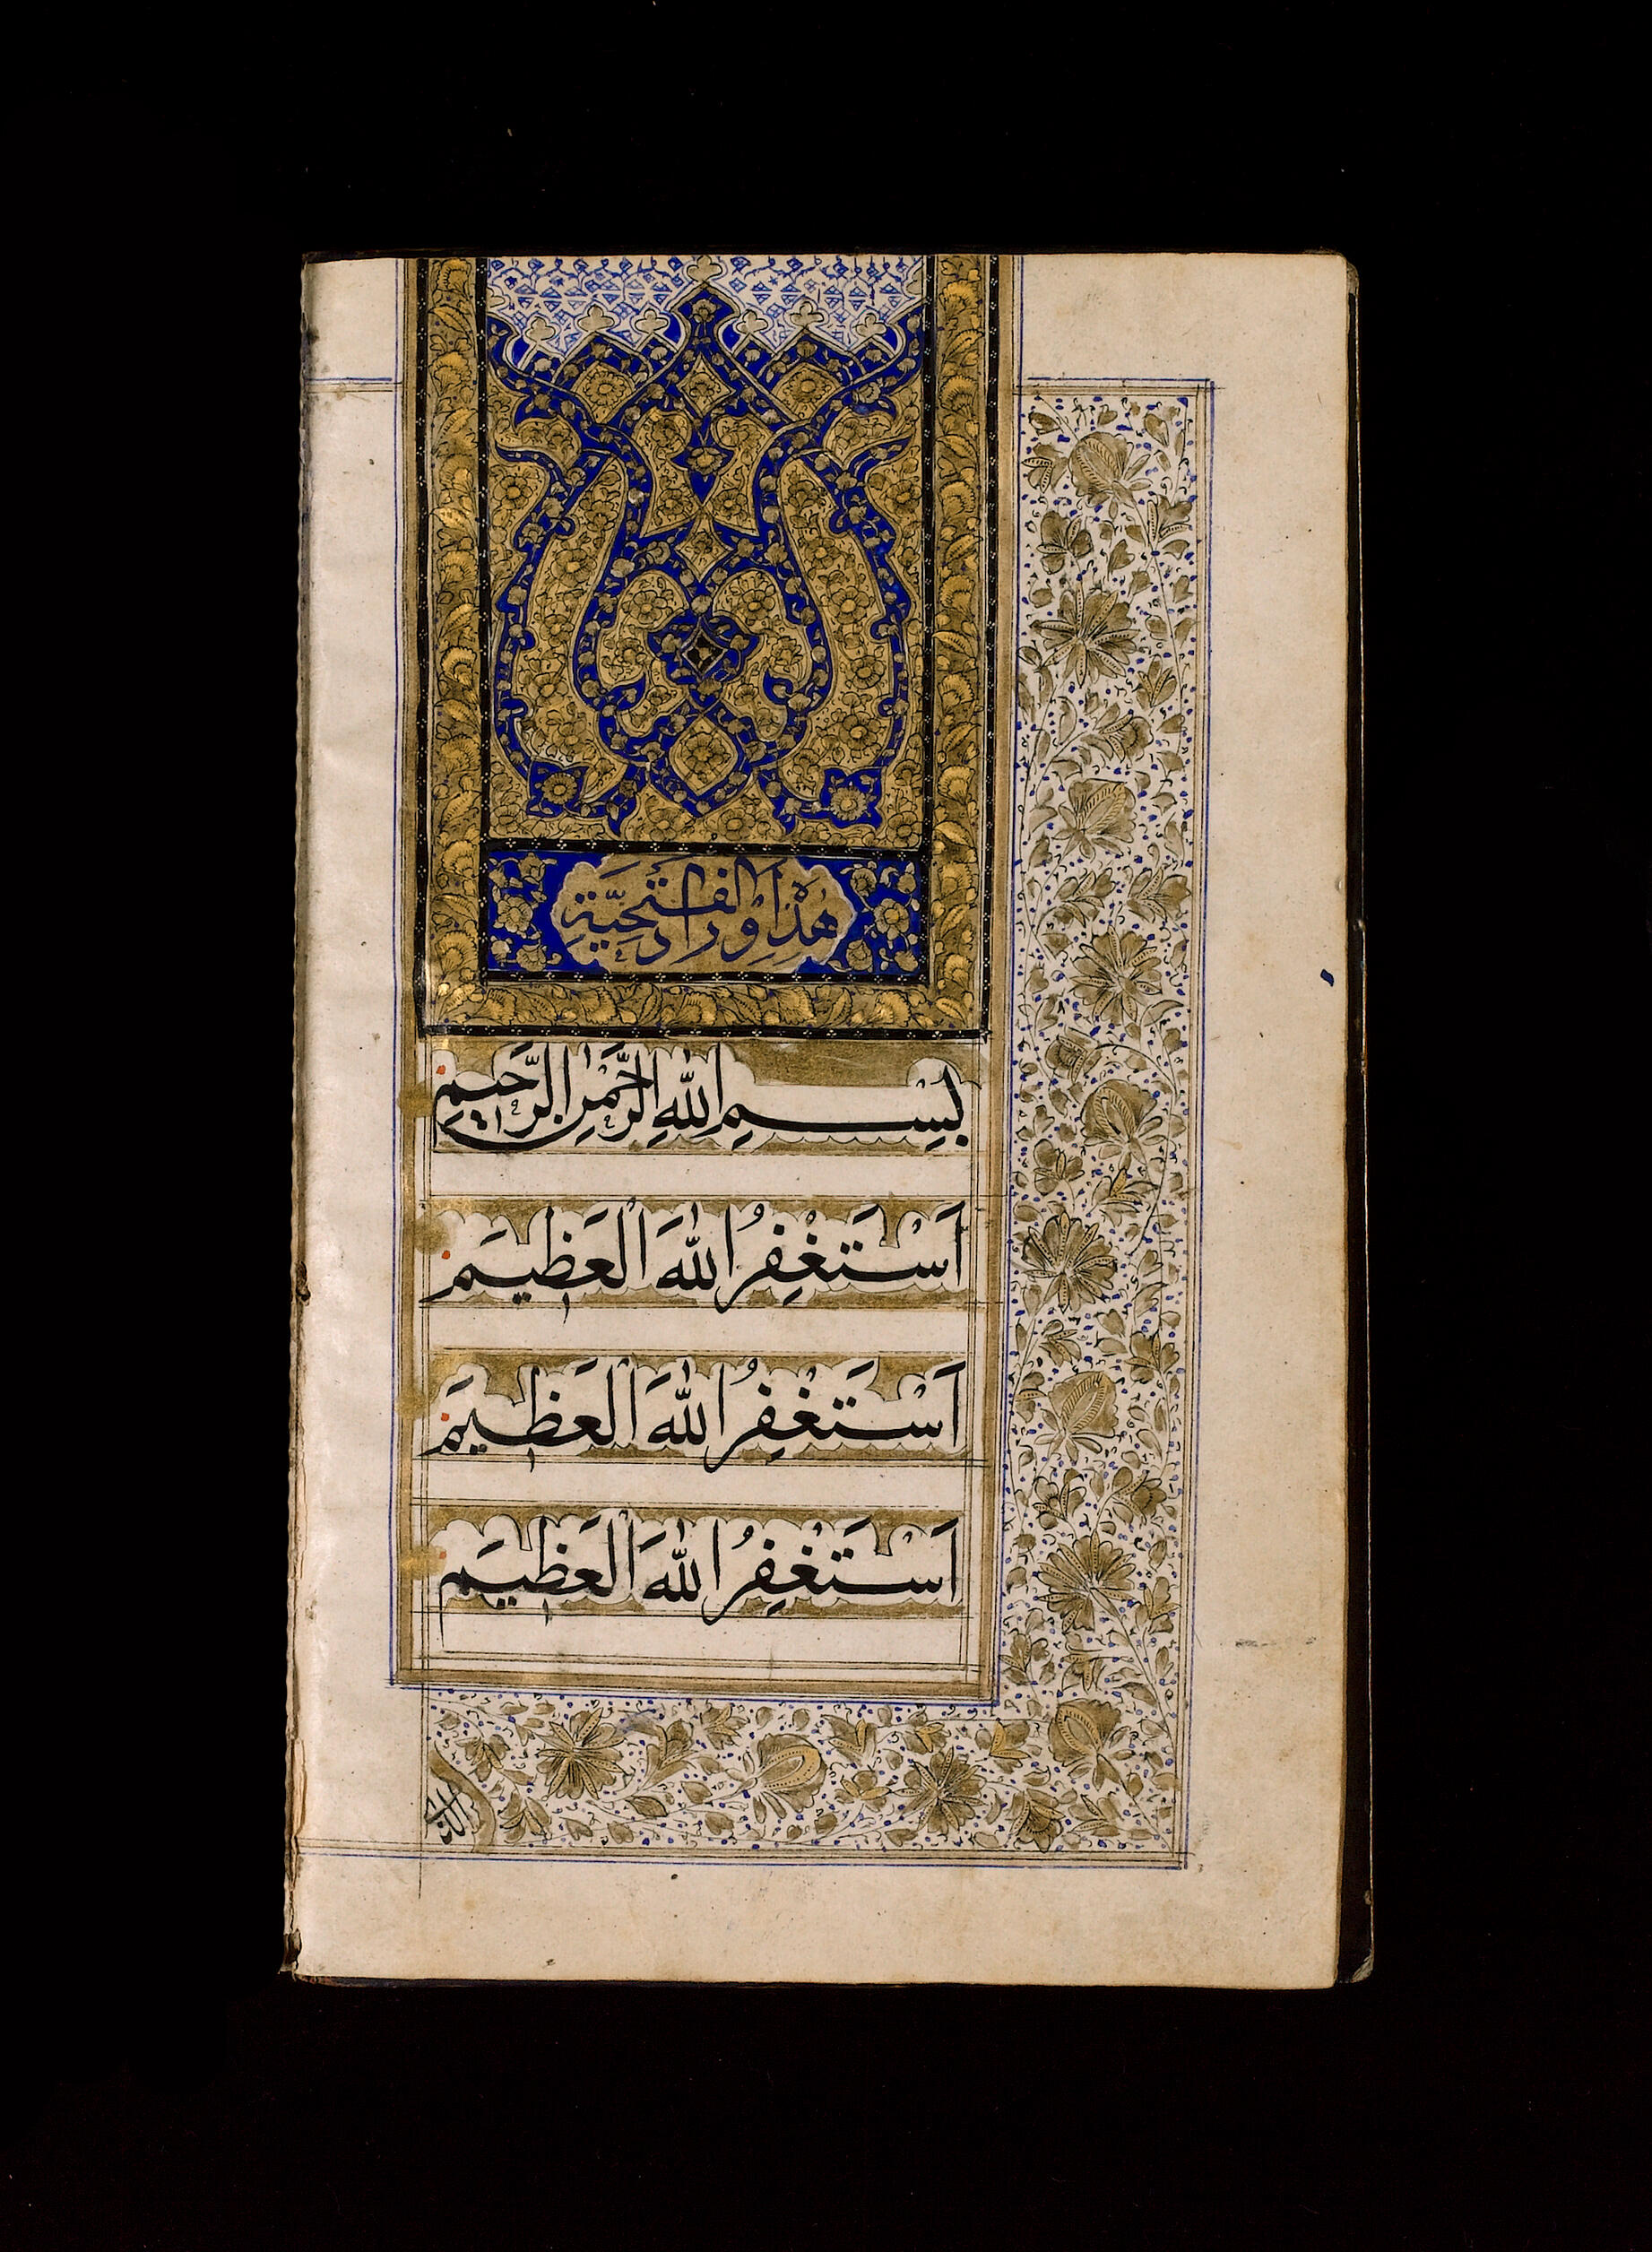 هٰذَا اَوْرَادِ الْفَتْحِيَّةِ
بِسْمِ اللهِ الرَّحْمٰنِ الرَّحِيمِ
اَسْتَغْفِرُ اللهَ الْعَظِيمَ
اَسْتَغْفِرُ اللهَ الْعَظِيمَ
اَسْتَغْفِرُ اللهَ الْعَظِيمَ